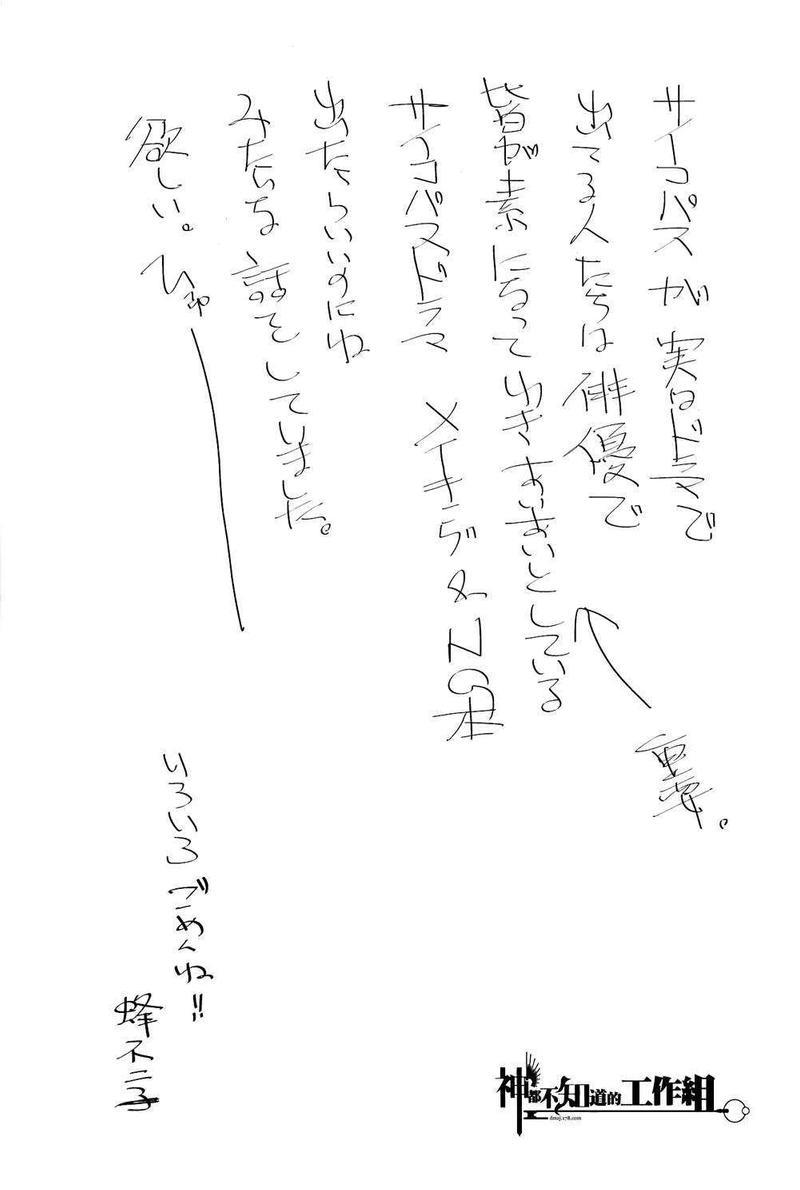 サイコパスが実はドラマで
出てる人たちは俳優で
皆が素になってわきあいあいとしている
サイコパスドラマ メイキング&NG本
出たらいいのにね
みたいな話をしていました。
欲しい。ひゅー
重要。
いろいろごめんね!!
蜂不二子
神都不知道的工作組
dmzj.178.com